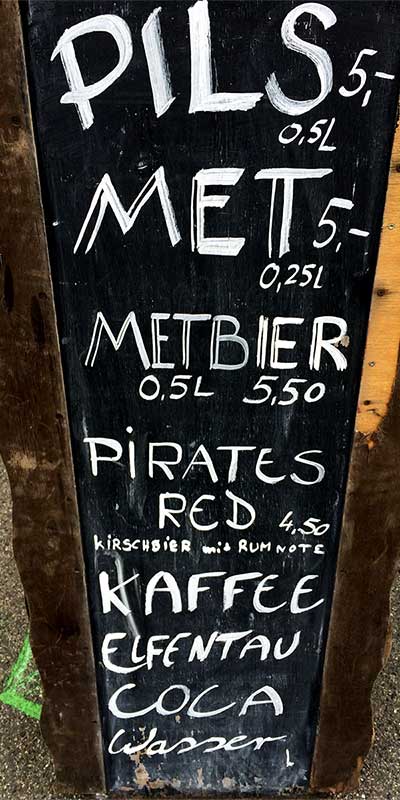 PILS 5,-
0,5L
MET 5,-
0,25L
METBIER
0,5L 5,50
PiRATES
RED 4,50
KiRSCHBiER mit RUMNOTE
KAFFEE
ELFENTAU
COCA
Wasser